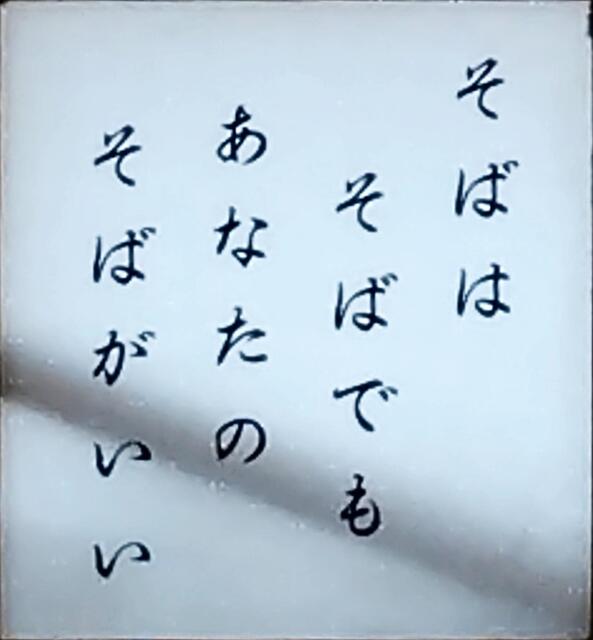 そばは
そばでも
あなたの
そばがいい